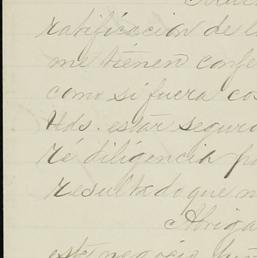 ratificación de l
me tienen confe
como si fuera co
Uds. estar seguro
ré diligencia pa
resultado que m
Abriga
este negocio